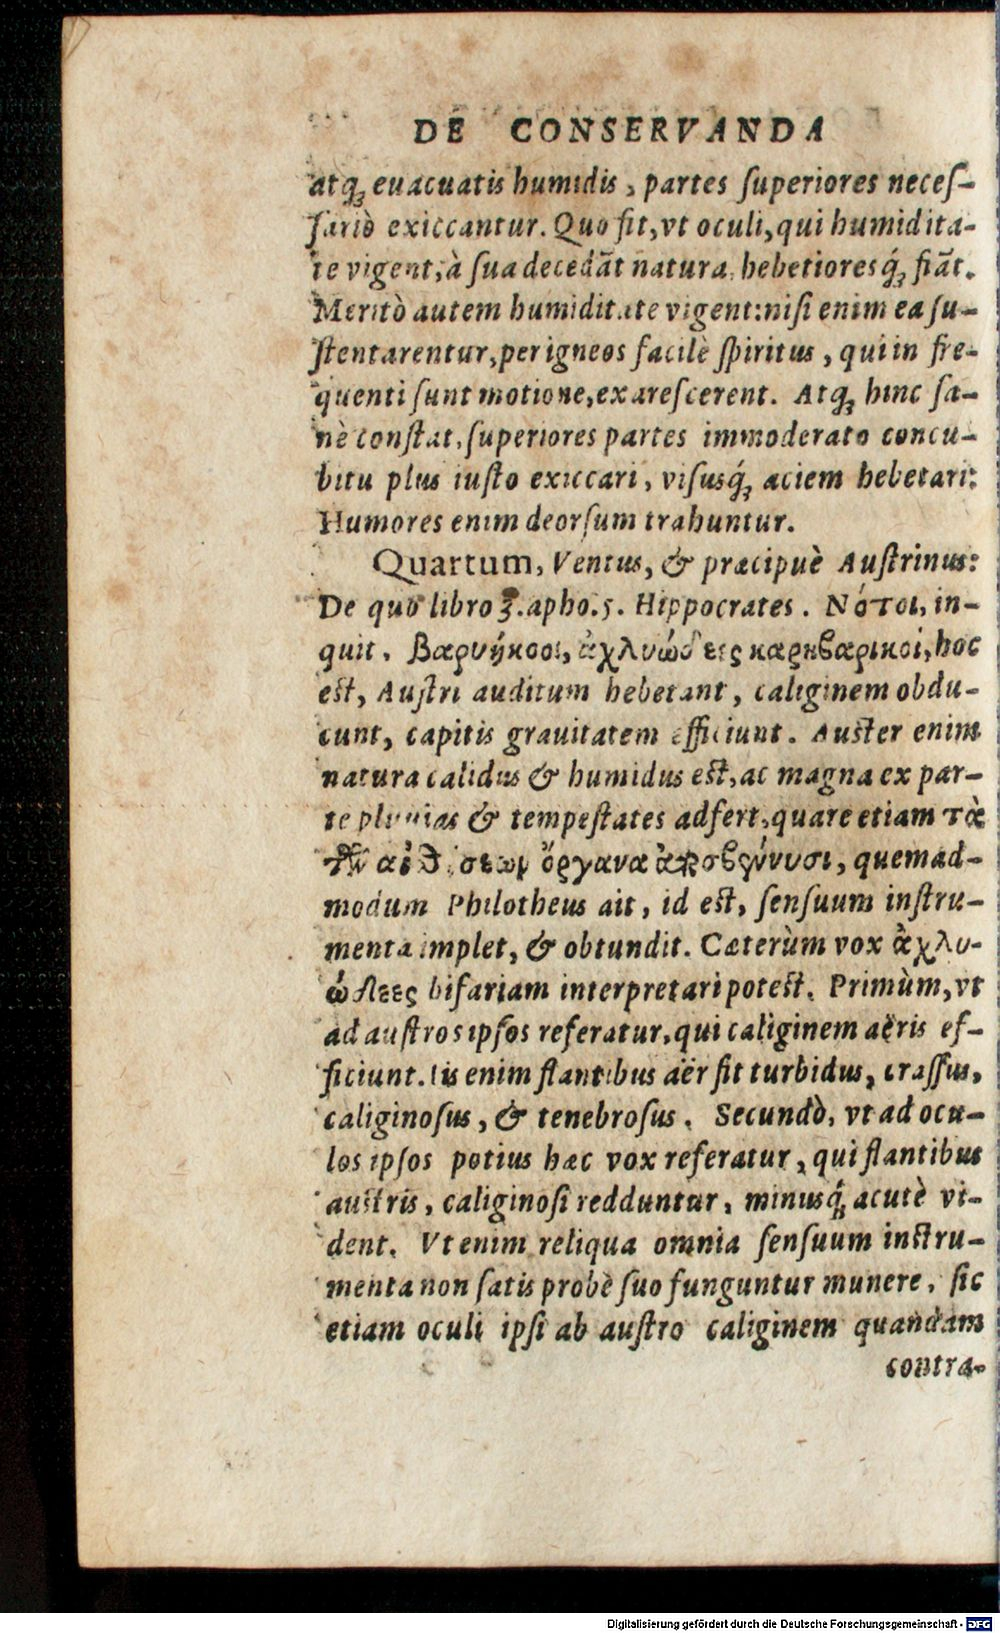 DE CONSERVANDA
atq́ꝫ euacuatis humidis, partes ſuperiores neceſ-
ſariò exiccantur. Quo fit, vt oculi, qui humidita-
te vigent, à ſua decedãt natura, hebetioresq́ꝫ fiãt.
Meritò autem humiditate vigent: niſi enim ea ſu-
ſtentarentur, per igneos facilè ſpiritus, qui in fre-
quenti ſunt motione, exareſcerent. Atqꝫ hinc ſa-
nè conſtat, ſuperiores partes immoderato concu-
bitu plus iuſto exiccari, viſusq́ꝫ aciem hebetari:
Humores enim deorſum trahuntur.
Quartum, Ventus, & præcipuè Auſtrinus:
De quo libro 3. apho. 5. Hippocrates. Νότοι, in-
quit, βαρυήκοοι, ἀχλυώδεες καρηβαρικοί, hoc
eſt, Auſtri auditum hebetant, caliginem obdu-
cunt, capitis grauitatem efficiunt. Auſter enim
natura calidus & humidus eſt, ac magna ex par-
te pluuias & tempeſtates adfert, quare etiam τὰ
τῶν αἰσθήσεων ὄργανα ἀποσβεννύουσι, quemad-
modum Philotheus ait, id eſt, ſenſuum inſtru-
menta implet, & obtundit. Cæterùm vox ἀχλυ-
ώδεες bifariam interpretari poteſt. Primùm, vt
ad auſtros ipſos referatur, qui caliginem aëris ef-
ficiunt. Iis enim flantibus aër fit turbidus, craſſus,
caliginoſus, & tenebroſus. Secundò, vt ad ocu-
los ipſos potius hæc vox referatur, qui flantibus
auſtris, caliginoſi redduntur, minusq́ꝫ acutè vi-
dent. Vt enim reliqua omnia ſenſuum inſtru-
menta non ſatis probè ſuo funguntur munere, ſic
etiam oculi ipſi ab auſtro caliginem quandam
contra-
Digitalisierung gefördert durch die Deutsche Forschungsgemeinschaft - DFG